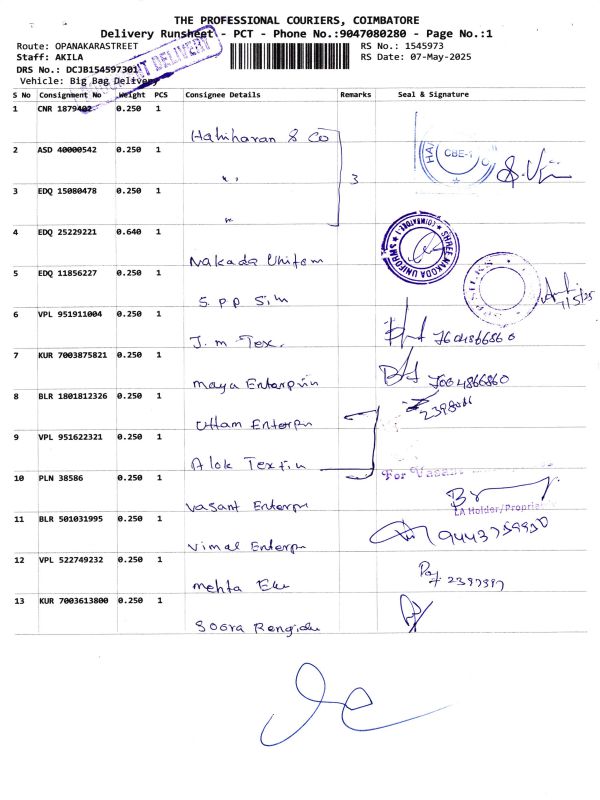 THE PROFESSIONAL COURIERS, COIMBATORE
Delivery Runsheet - PCT - Phone No.:9047080280 - Page No.:1
Route: OPANAKARASTREET
RS No.: 1545973
Staff: AKILA
RS Date: 07-May-2025
DRS No.: DCJB154597301
Vehicle: Big Bag Delivery
DELIVERY
S No Consignment No Weight PCS Consignee Details Remarks Seal & Signature
1 CNR 1879402 0.250 1 Hahiharan & Co
2 ASD 40000542 0.250 1 " 3
CBE-1
3 EDQ 15080478 0.250 1 "
4 EDQ 25229221 0.640 1 Nakada Uniform
SHREE NAKODA UNIFORM
5 EDQ 11856227 0.250 1 S. P P Sim
6 VPL 951911004 0.250 1 J. m Tex.
7 KUR 7003875821 0.250 1 Maya Enterprin
8 BLR 1801812326 0.250 1 Uttam Enterpr
9 VPL 951622321 0.250 1 Alok Texfin
For Vasant
10 PLN 38586 0.250 1 Vasant Enterpr
11 BLR 501031995 0.250 1 Vimal Enterpr
12 VPL 522749232 0.250 1 mehta
13 KUR 7003613800 0.250 1 Soora